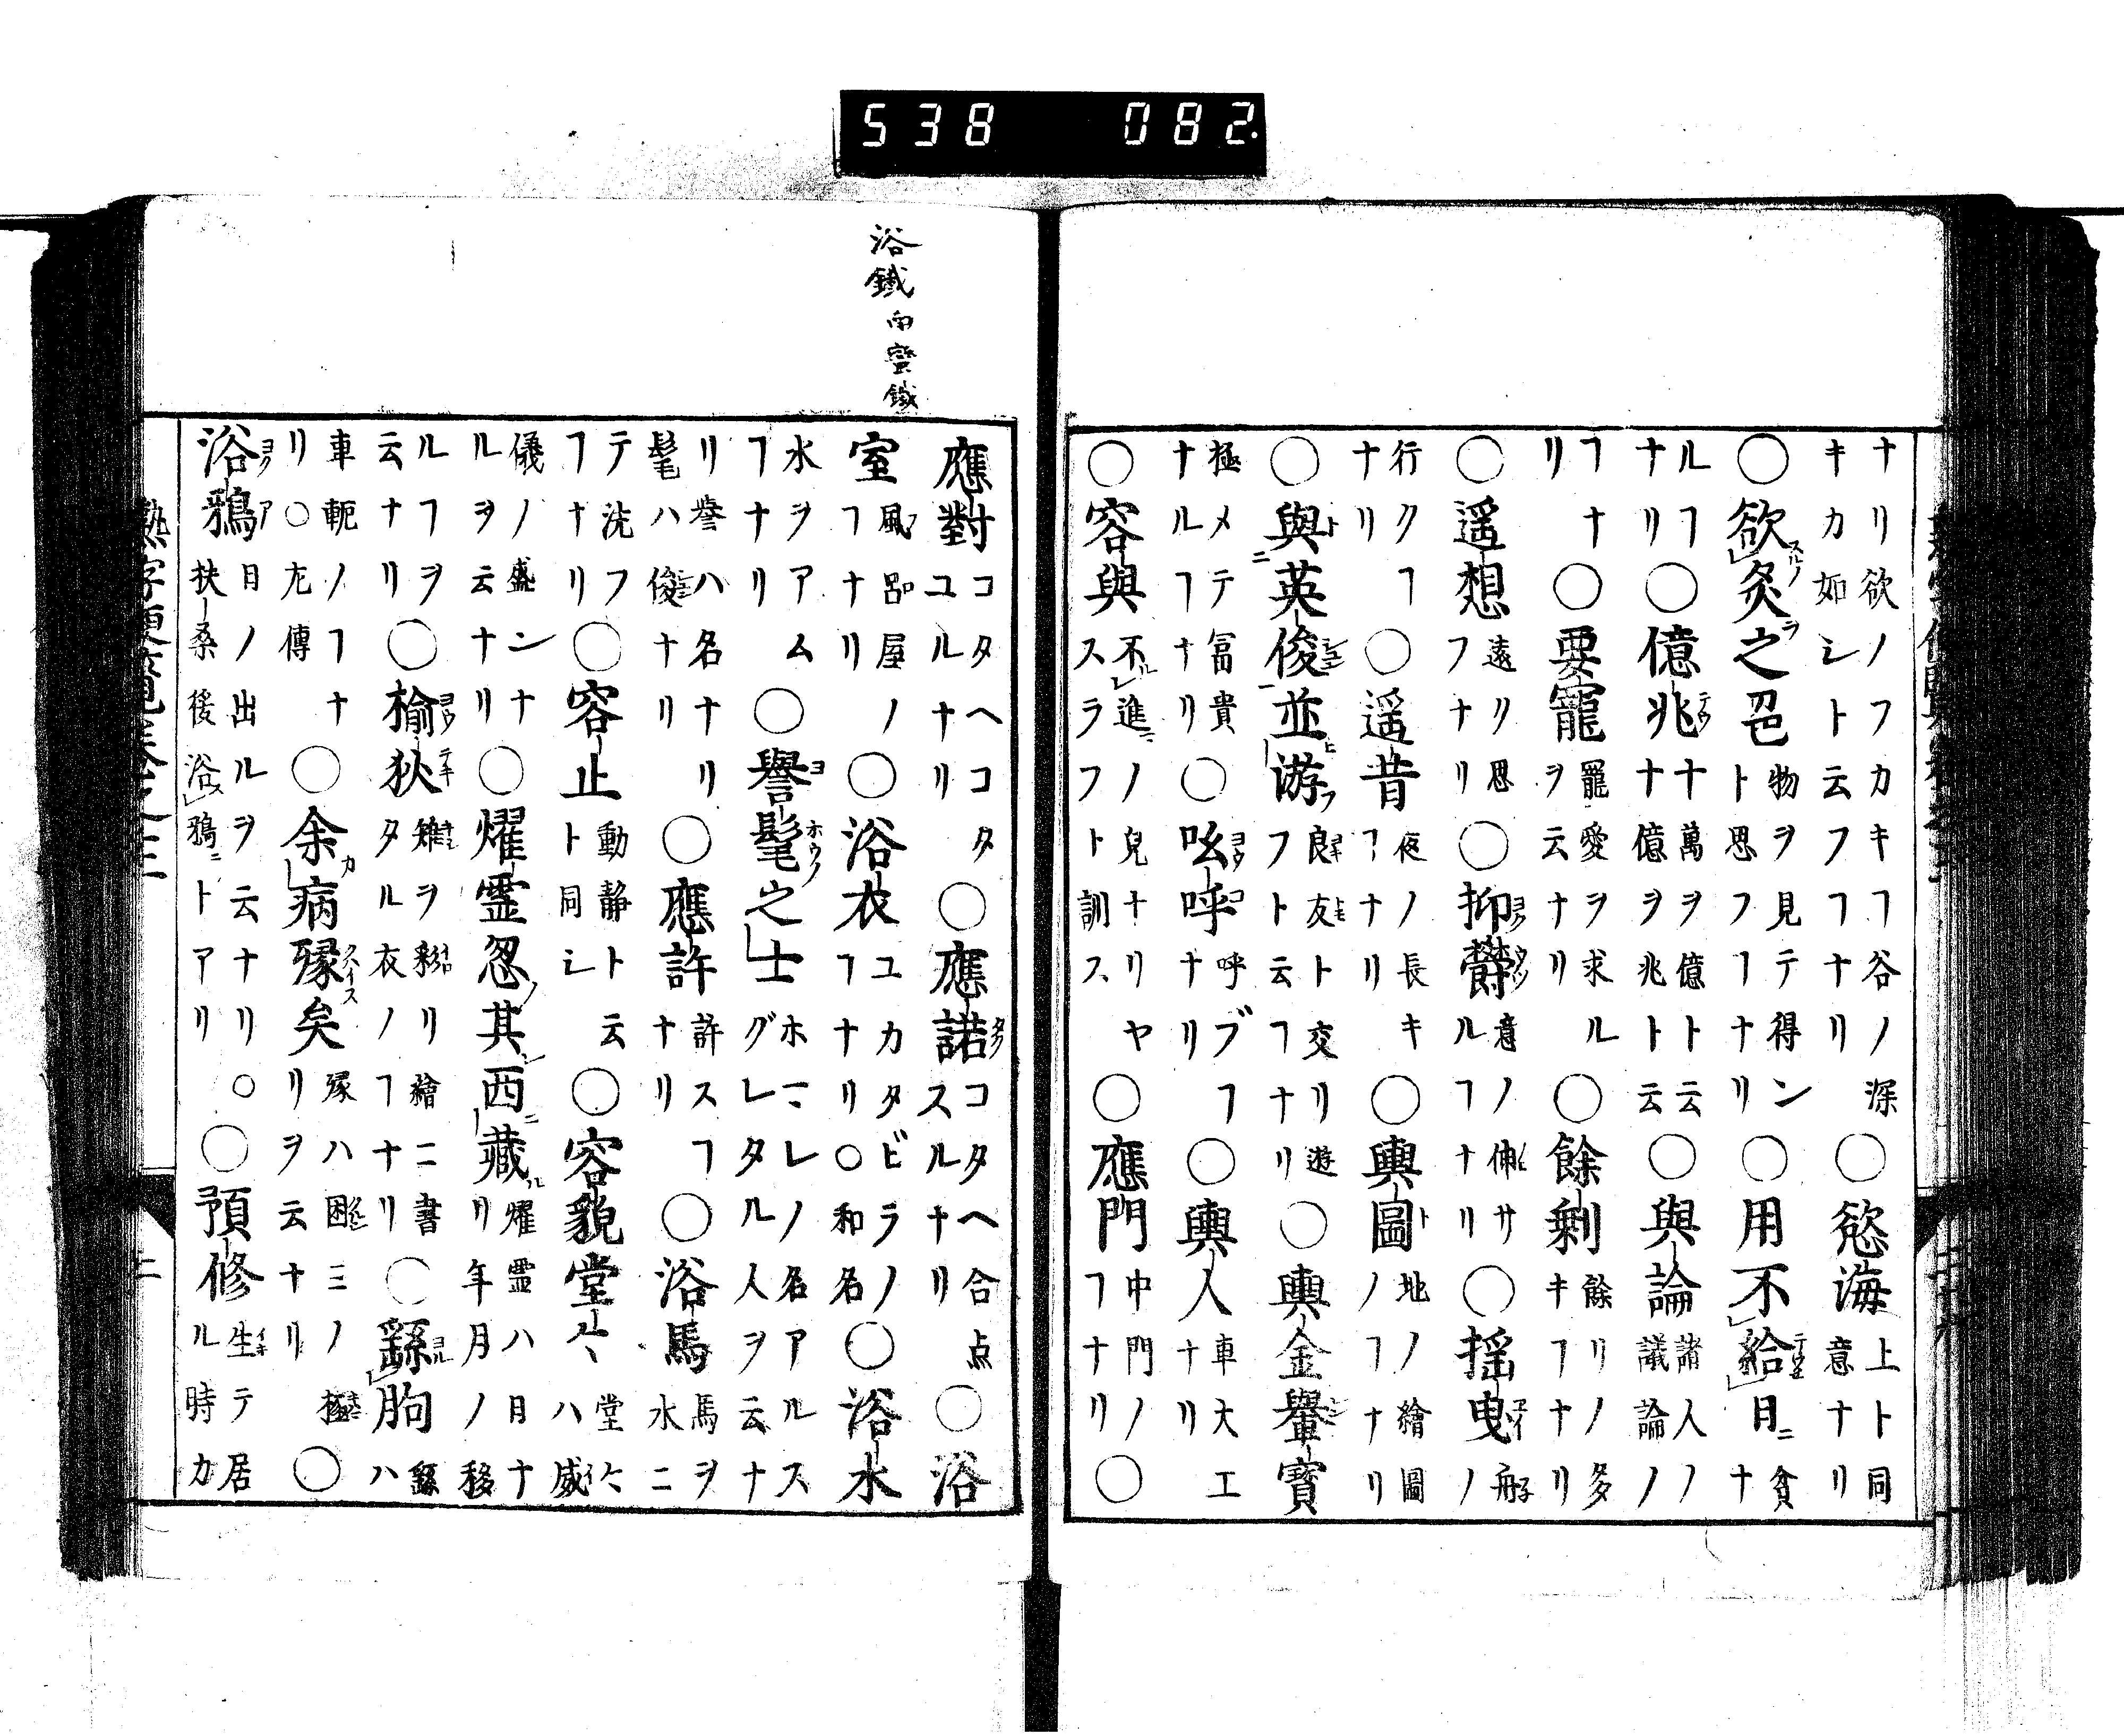 538 082.
ナリ欲ノフカキヿ谷ノ深キカ如シト云フヿナリ○慾海上ト同意ナリ
○欲炙之色物ヲ見テ得ントト思フヿナリ○用不給日ニ貧ナ
ルヿナリ○億兆十萬ヲ億ト云十億ヲ兆ト云○與論諸人ノ議論ノ
ヿナリ○要寵寵愛ヲ求ルヲ云ナリ○餘剰餘リノ多キヿナリ
○遥想遠リ思フナリ○抑欝意ノ伸サルヿナリ○揺曳舟ノ
行クヿナリ○遥昔夜ノ長キヿナリ○輿圖地ノ繪圖ノヿナリ
○與英俊並游良友ト交リ遊フト云フヿナリ○輿金轝寶
極メテ冨貴ナルヿナリ○吆呼呼ブヿナリ○輿人車大工ナリ
○容與不進ノ皃ナリヤスラフト訓ス○應門中門ノヿナリ○
浴鐵 甲蛮鐵
應對コタヘコタユルナリ○應諾コタヘ合点スルナリ○浴
室風呂屋ノヿナリ○浴衣ユカタビラノヿナリ○和名○浴水
水ヲアムヿナリ○譽髦之士ホマレノ名アルスグレタル人ヲ云ナ
リ誉ハ名ナリ髦ハ俊ナリ○應許許スヿナリ○浴馬馬ヲ水ニ
テ洗フヿナリ○容止動静ト云ト同シ○容貌堂々堂々ハ威
儀ノ盛ンナルヲ云ナリ○燿霊忽其西藏燿霊ハ日ナリ年月ノ移
ルヿヲ云ナリ○楡狄雉ヲ彩リ繪ニ書タル衣ノヿナリ○繇朐繇ハ
車軛ノヿナリ○尢傳○余病瘃矣瘃ハ困ミノ極リヲ云ナリ○
浴鴉日ノ出ルヲ云ナリ○扶桑後浴鴉ニトアリ○預修生テ居ル時カ
二